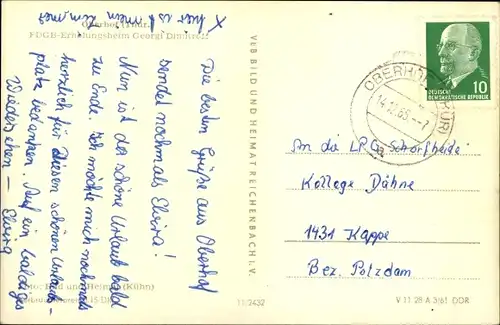 X hier ist mein Zimmer
Oberhof (Thür.)
FDGB-Erholungsheim Georgi Dimitroff
Die besten Grüße aus Oberhof
sendet nochmals Elvira!
Nun ist der schöne Urlaub bald
zu Ende. Ich möchte mich nochmals
herzlich für diesen schönen Urlaubs-
platz bedanken. Auf ein baldiges
Wiedersehen – Elvira
Foto: Bild und Heimat (Kühn)
15 DPf
VEB BILD UND HEIMAT REICHENBACH I. V.
11/2432
OBERHOF (THÜR)
14.12.65
DEUTSCHE
DEMOKRATISCHE REPUBLIK
10
An die LPG Schorfheide
Kollege Dähne
1431 Kappe
Bez. Potzdam
V 11 28 A 3/65 DDR